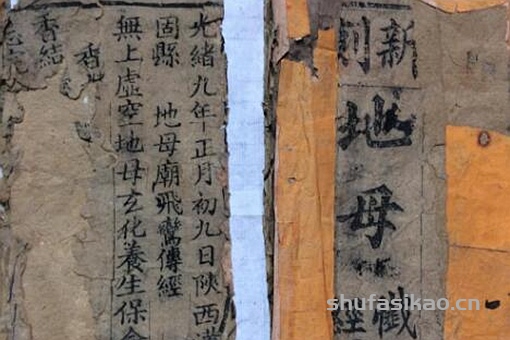 新
刻
地母
懺
經
光緒九年正月初九日陝西漢
固縣 地母廟飛鸞傳經
無上虛空地母玄化養生保命
香
香結
shufasikao.cn